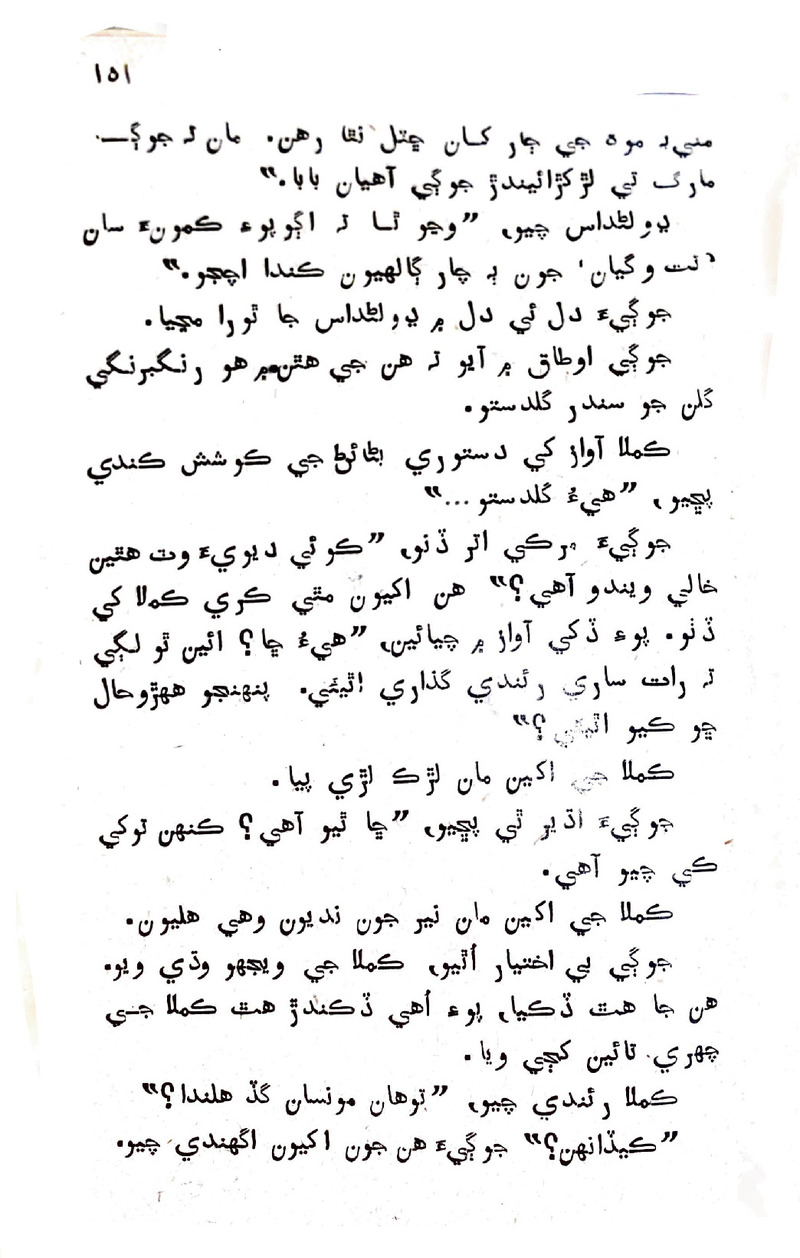 ۱۵۱
مني۾ موه جي ڄار کان ڇٽل نٿا رهن. مان ته جوڳ—
مارگ تي لڙکڙائيندڙ جوڳي آهيان بابا.“
ڍولڻداس چيو، ”وڃو ٿا ته اڳو پوءِ ڪمونءَ سان
’تت و گيان‘ جون ٻه چار ڳالهيون ڪندا اچجو.“
جوڳيءَ دل ئي دل ۾ ڍولڻداس جا ٿورا مڃيا.
جوڳي اوطاق ۾ آيو ته هن جي هٿن۾ هو رنگبرنگي
گلن جو سندر گلدستو.
ڪملا آواز کي دستوري بڻائڻ جي ڪوشش ڪندي
پڇيو، ”هيءُ گلدستو...“
جوڳيءَ مرڪي اتر ڏنو، ”ڪوئي ديويءَ وٽ هٿين
خالي ويندو آهي؟“ هن اکيون مٿي ڪري ڪملا کي
ڏٺو. پوءِ ڏکي آواز ۾ چيائين، ”هيءُ ڇا؟ ائين ٿو لڳي
ته رات ساري رئندي گذاري اٿيئي. پنهنجو ههڙو حال
ڇو ڪيو اٿيئي؟“
ڪملا جي اکين مان لڙڪ لڙي پيا.
جوڳيءَ اڌير ٿي پڇيو، ”ڇا ٿيو آهي؟ ڪنهن توکي
ڪي چيو آهي.
ڪملا جي اکين مان نير جون نديون وهي هليون.
جوڳي بي اختيار اُٿيو، ڪملا جي ويجهو وڌي ويو.
هن جا هٿ ڏڪيا، پوءِ اُهي ڏڪندڙ هٿ ڪملا جي
چهري تائين کڄي ويا.
ڪملا رئندي چيو، ”توهان مونسان گڏ هلندا؟“
”ڪيڏانهن؟“ جوڳيءَ هن جون اکيون اگهندي چيو.